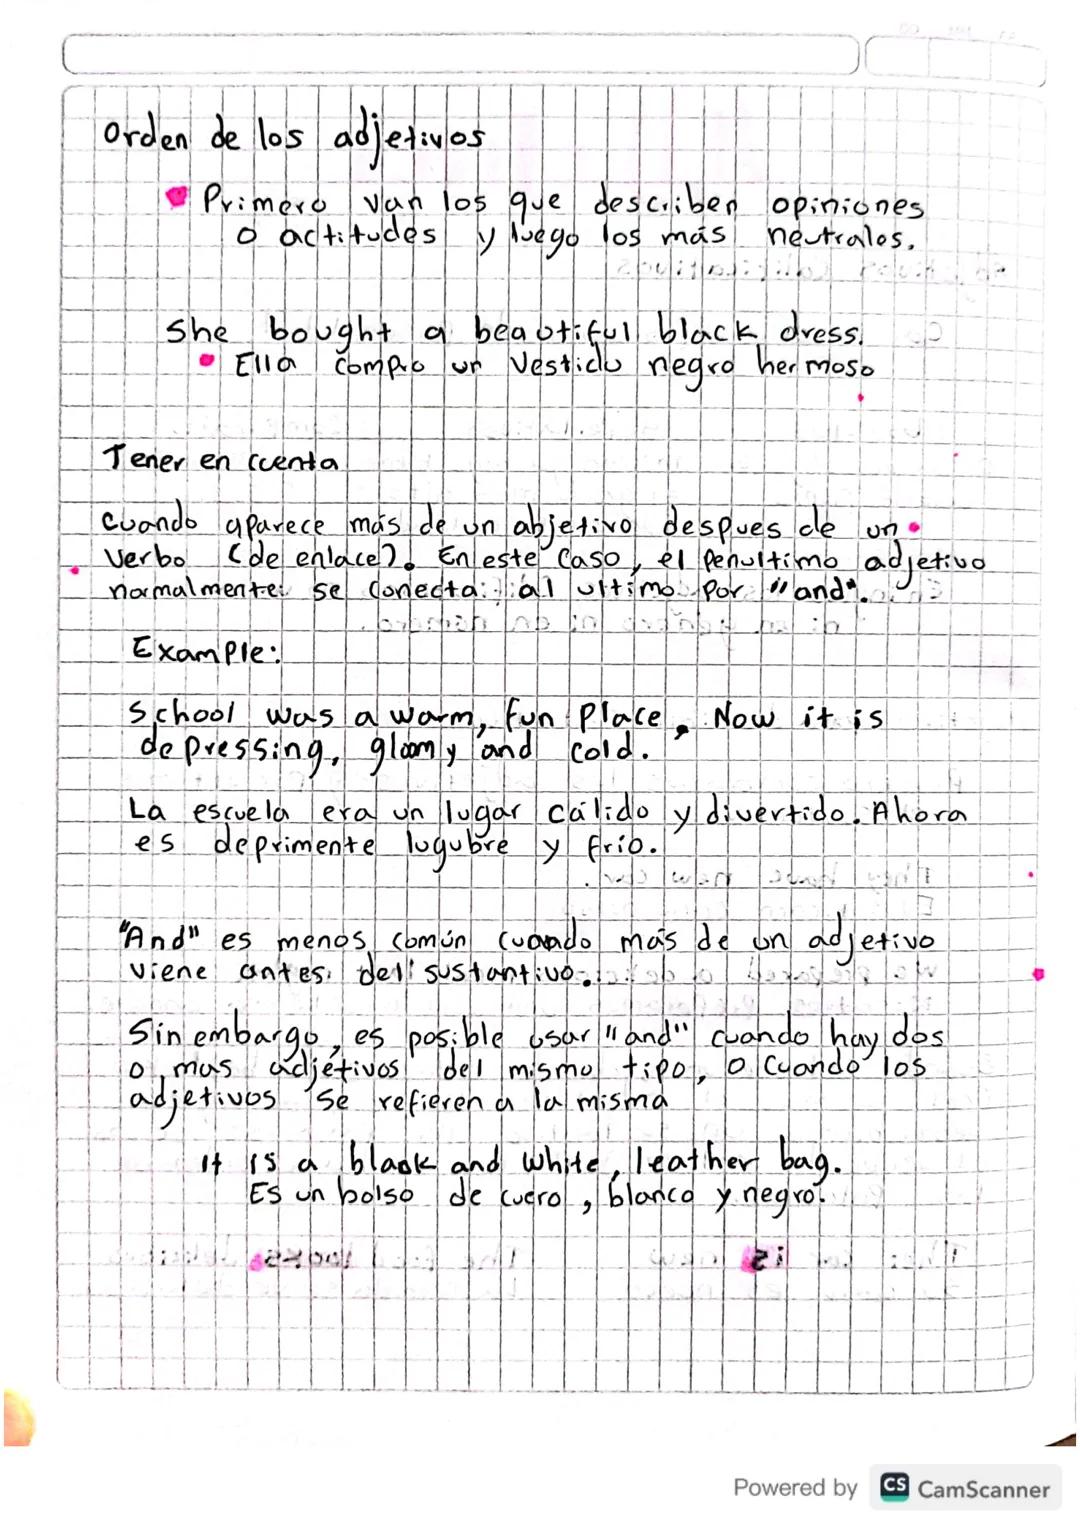 Orden de los adjetivos
Primero van los que describen opiniones
o actitudes y luego los más neutrales.
She bought a beautiful black dress.
Ella compro un vestido negro hermoso
Tener en cuenta
Cuando aparece más de un abjetivo despues de un
verbo (de enlace). En este caso, el penultimo adjetivo
normalmente se conecta al ultimo por "and".
Example:
School was a warm, fun place. Now it is
depressing, gloomy and cold.
La escuela era un lugar cálido y divertido. Ahora
es deprimente lugubre y frio.
"And" es menos común cuando más de un adjetivo
viene antes del sustantivo.
Sin embargo, es posible usar "and" cuando hay dos
o mas adjetivos del mismo tipo, o cuando los
adjetivos se refieren a la misma
It is a black and white, leather bag.
Es un bolso de cuero, blanco y negro.
Powered by CS CamScanner